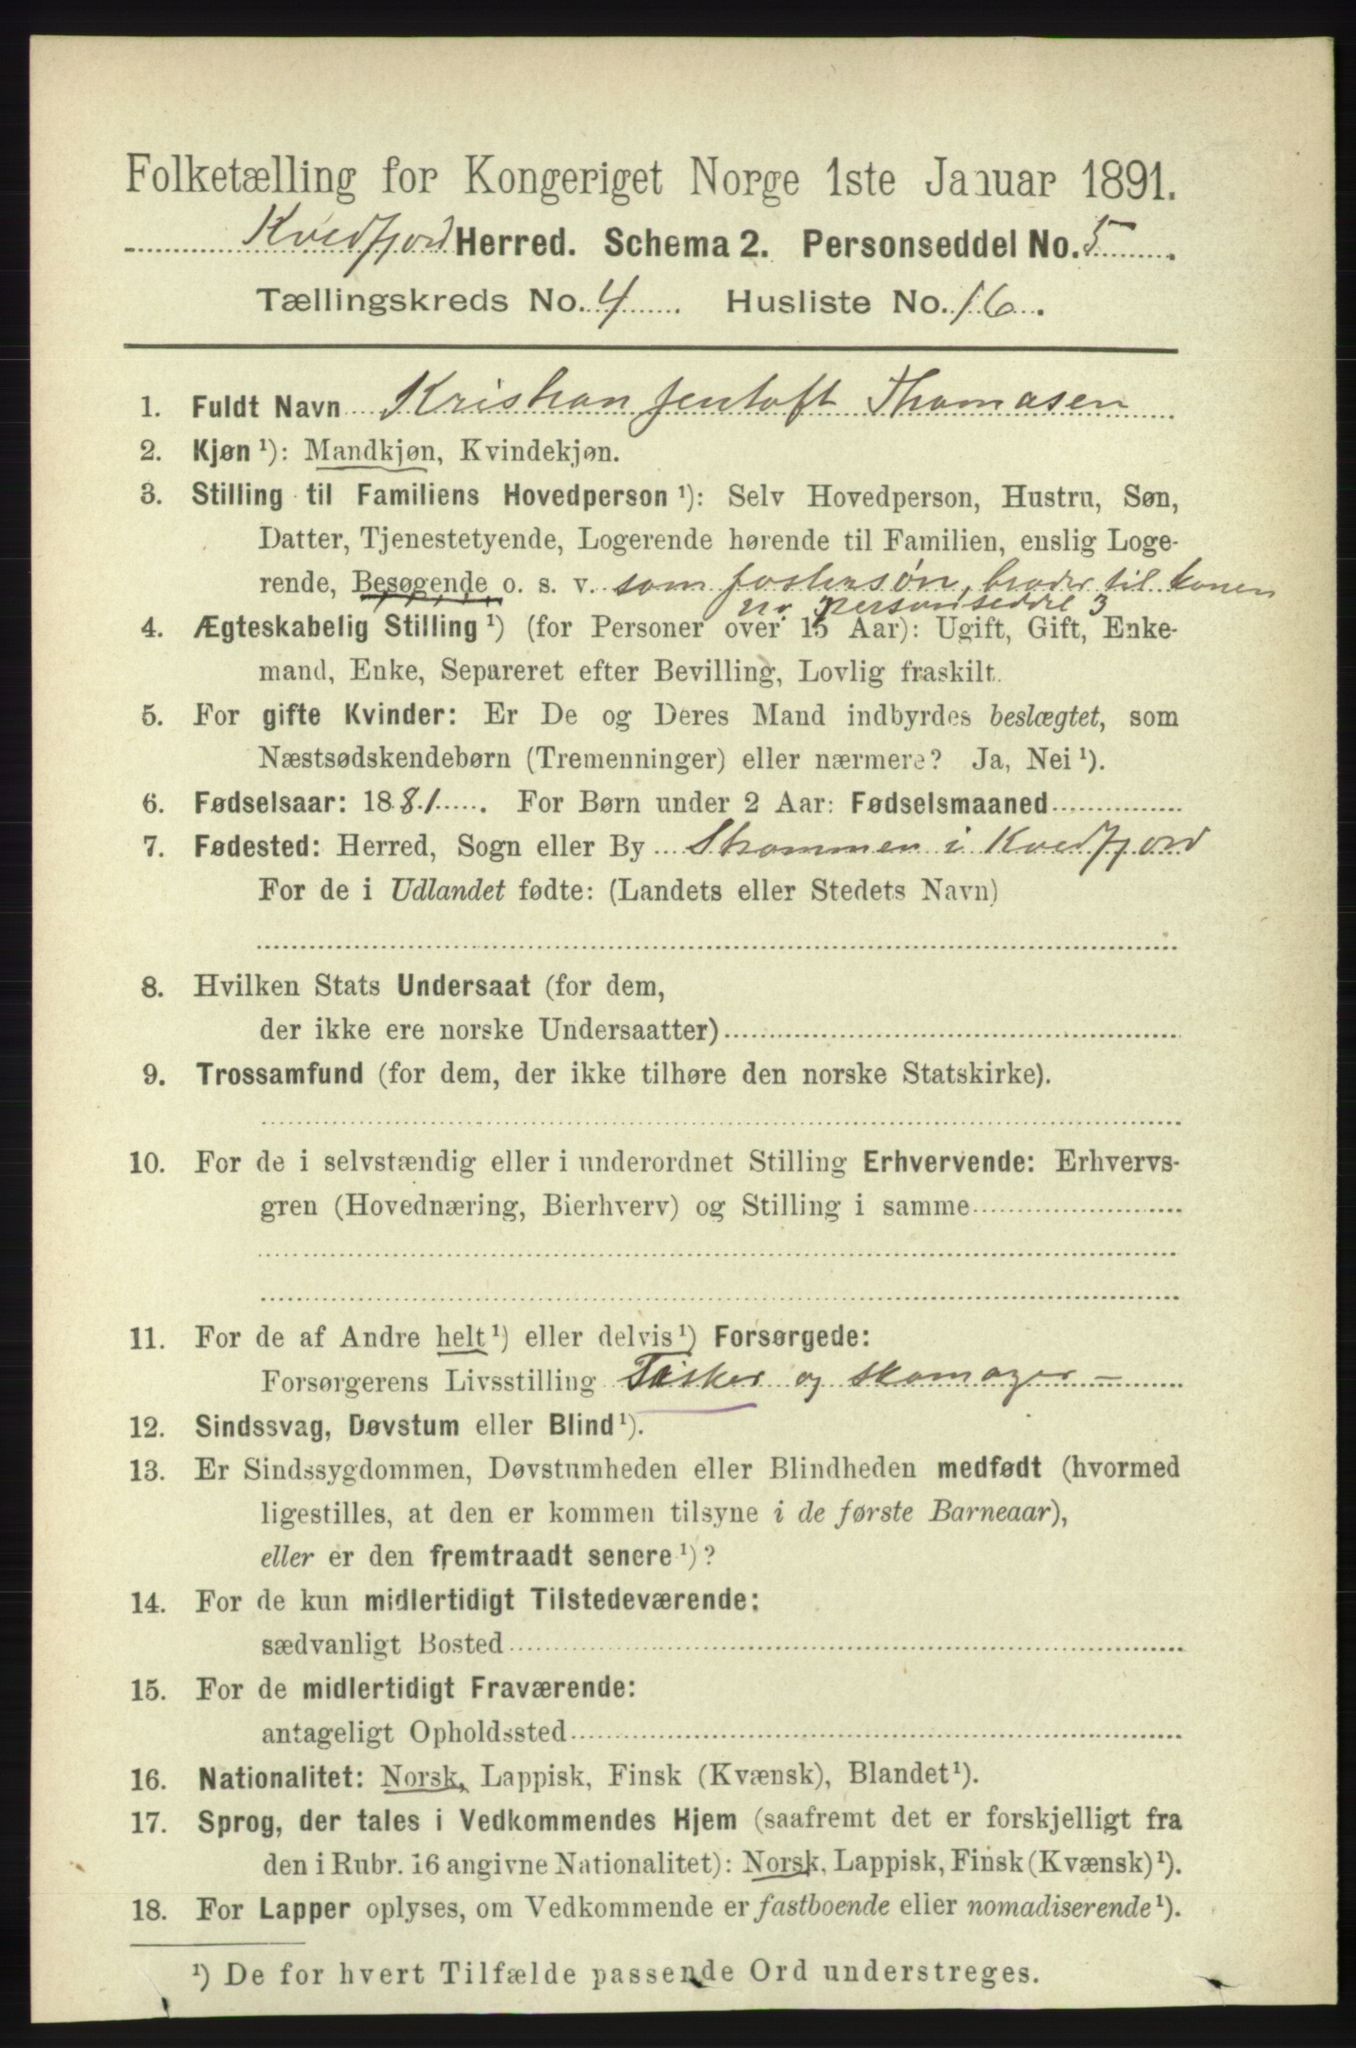 Folketælling for Kongeriget Norge 1ste Januar 1891.
Kvedfjord Herred. Schema 2. Personseddel No. 5
Tællingskreds No. 4 Husliste No. 16.
1. Fuldt Navn Kristian Jentoft Thomasen
2. Kjøn ¹): Mandkjøn, Kvindekjøn.
3. Stilling til Familiens Hovedperson ¹): Selv Hovedperson, Hustru, Søn,
Datter, Tjenestetyende, Logerende hørende til Familien, enslig Loge-
rende, Besøgende o. s. v. som fostersøn, broder til konen
no personseddel 3
4. Ægteskabelig Stilling ¹) (for Personer over 15 Aar): Ugift, Gift, Enke-
mand, Enke, Separeret efter Bevilling, Lovlig fraskilt.
5. For gifte Kvinder: Er De og Deres Mand indbyrdes beslægtet, som
Næstsødskendebørn (Tremenninger) eller nærmere? Ja, Nei ¹).
6. Fødselsaar: 1881. For Børn under 2 Aar: Fødselsmaaned
7. Fødested: Herred, Sogn eller By Strømmen i Kvedfjord
For de i Udlandet fødte: (Landets eller Stedets Navn)
8. Hvilken Stats Undersaat (for dem,
der ikke ere norske Undersaatter)
9. Trossamfund (for dem, der ikke tilhøre den norske Statskirke).
10. For de i selvstændig eller i underordnet Stilling Erhvervende: Erhvervs-
gren (Hovednæring, Bierhverv) og Stilling i samme
11. For de af Andre helt ¹) eller delvis ¹) Forsørgede:
Forsørgerens Livsstilling Fisker og skomager –
12. Sindssvag, Døvstum eller Blind ¹).
13. Er Sindssygdommen, Døvstumheden eller Blindheden medfødt (hvormed
ligestilles, at den er kommen tilsyne i de første Barneaar),
eller er den fremtraadt senere ¹)?
14. For de kun midlertidigt Tilstedeværende:
sædvanligt Bosted
15. For de midlertidigt Fraværende:
antageligt Opholdssted
16. Nationalitet: Norsk, Lappisk, Finsk (Kvænsk), Blandet ¹).
17. Sprog, der tales i Vedkommendes Hjem (saafremt det er forskjelligt fra
den i Rubr. 16 angivne Nationalitet): Norsk, Lappisk, Finsk (Kvænsk) ¹).
18. For Lapper oplyses, om Vedkommende er fastboende eller nomadiserende ¹).
¹) De for hvert Tilfælde passende Ord understreges.